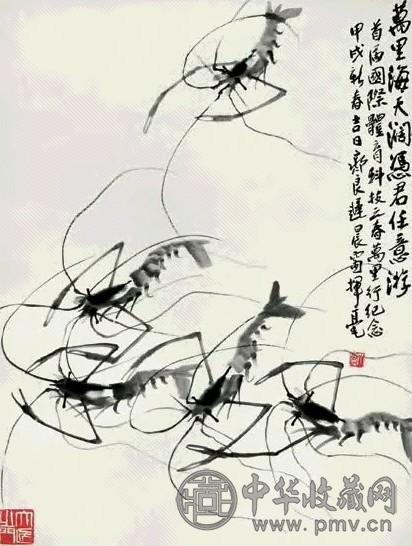 萬里海天闊憑君任意游
首届國際體育科技之春萬里行紀念
甲戌新春吉日齊良遲晨窗揮毫
大匠之門
中华收藏网
www.pmv.cn